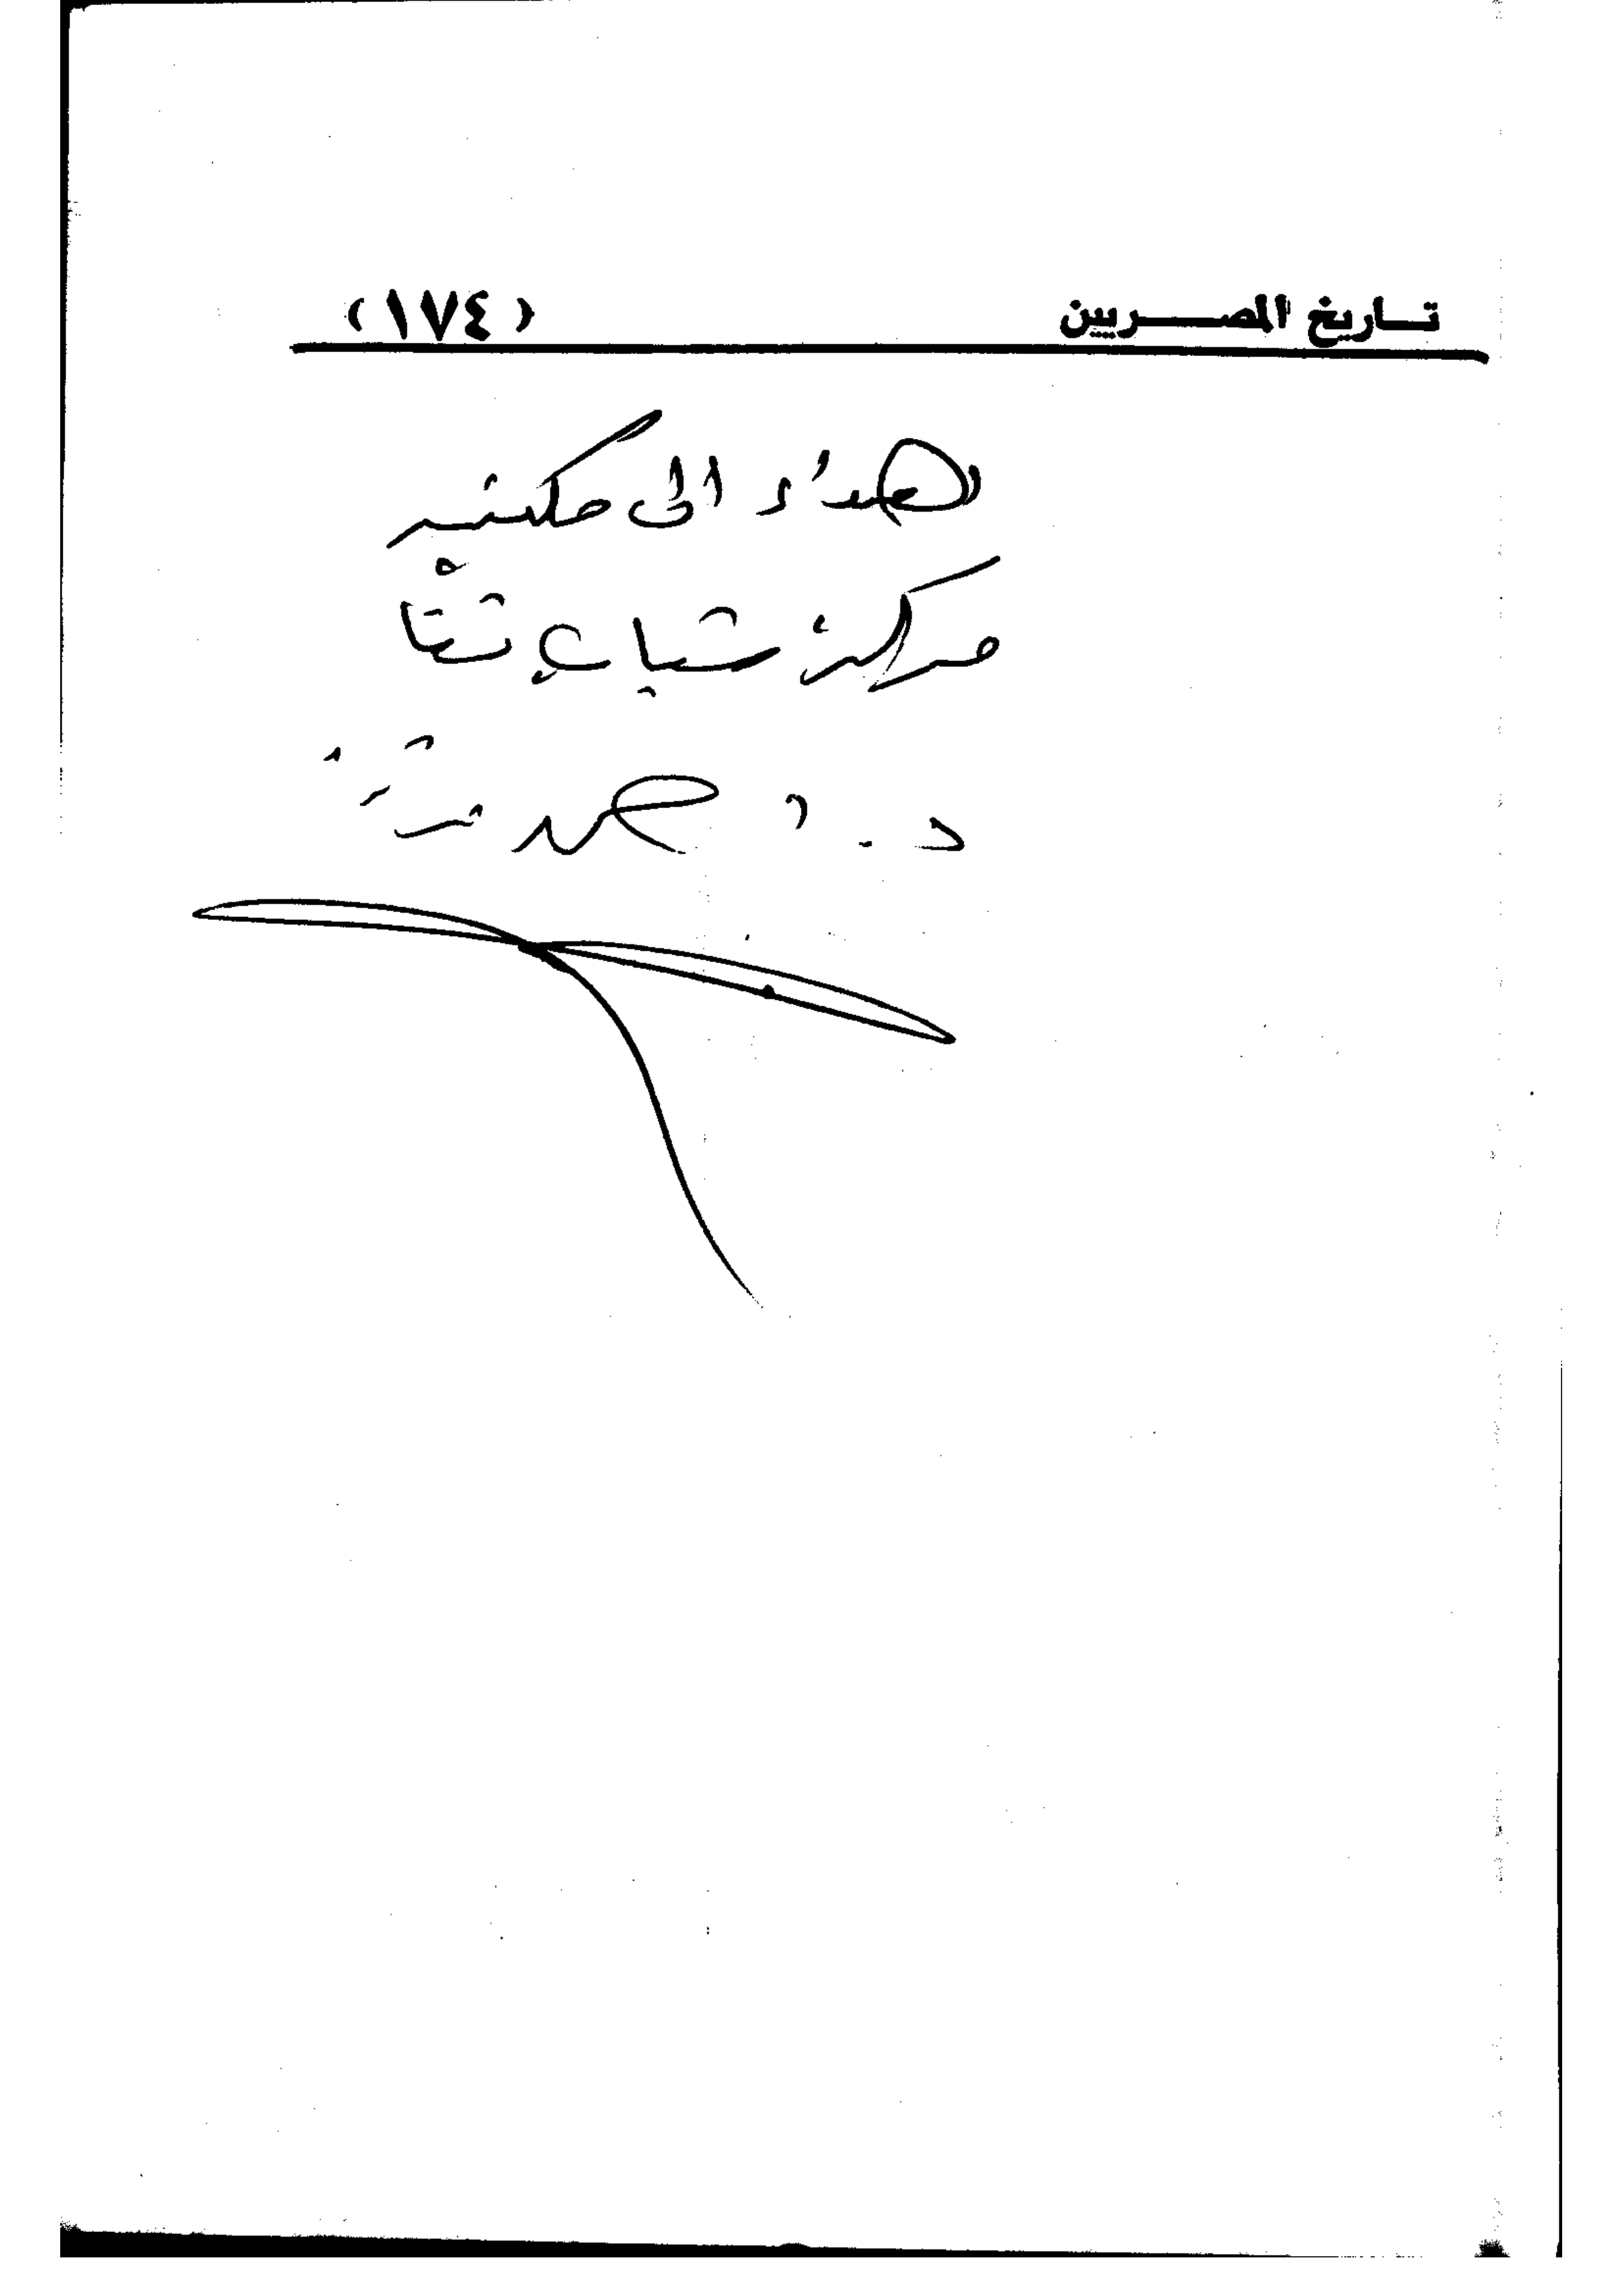 تاريخ المصريين (١٧٤)
اهداء الى مكتبة
مركز شباب تتا
د. احمد